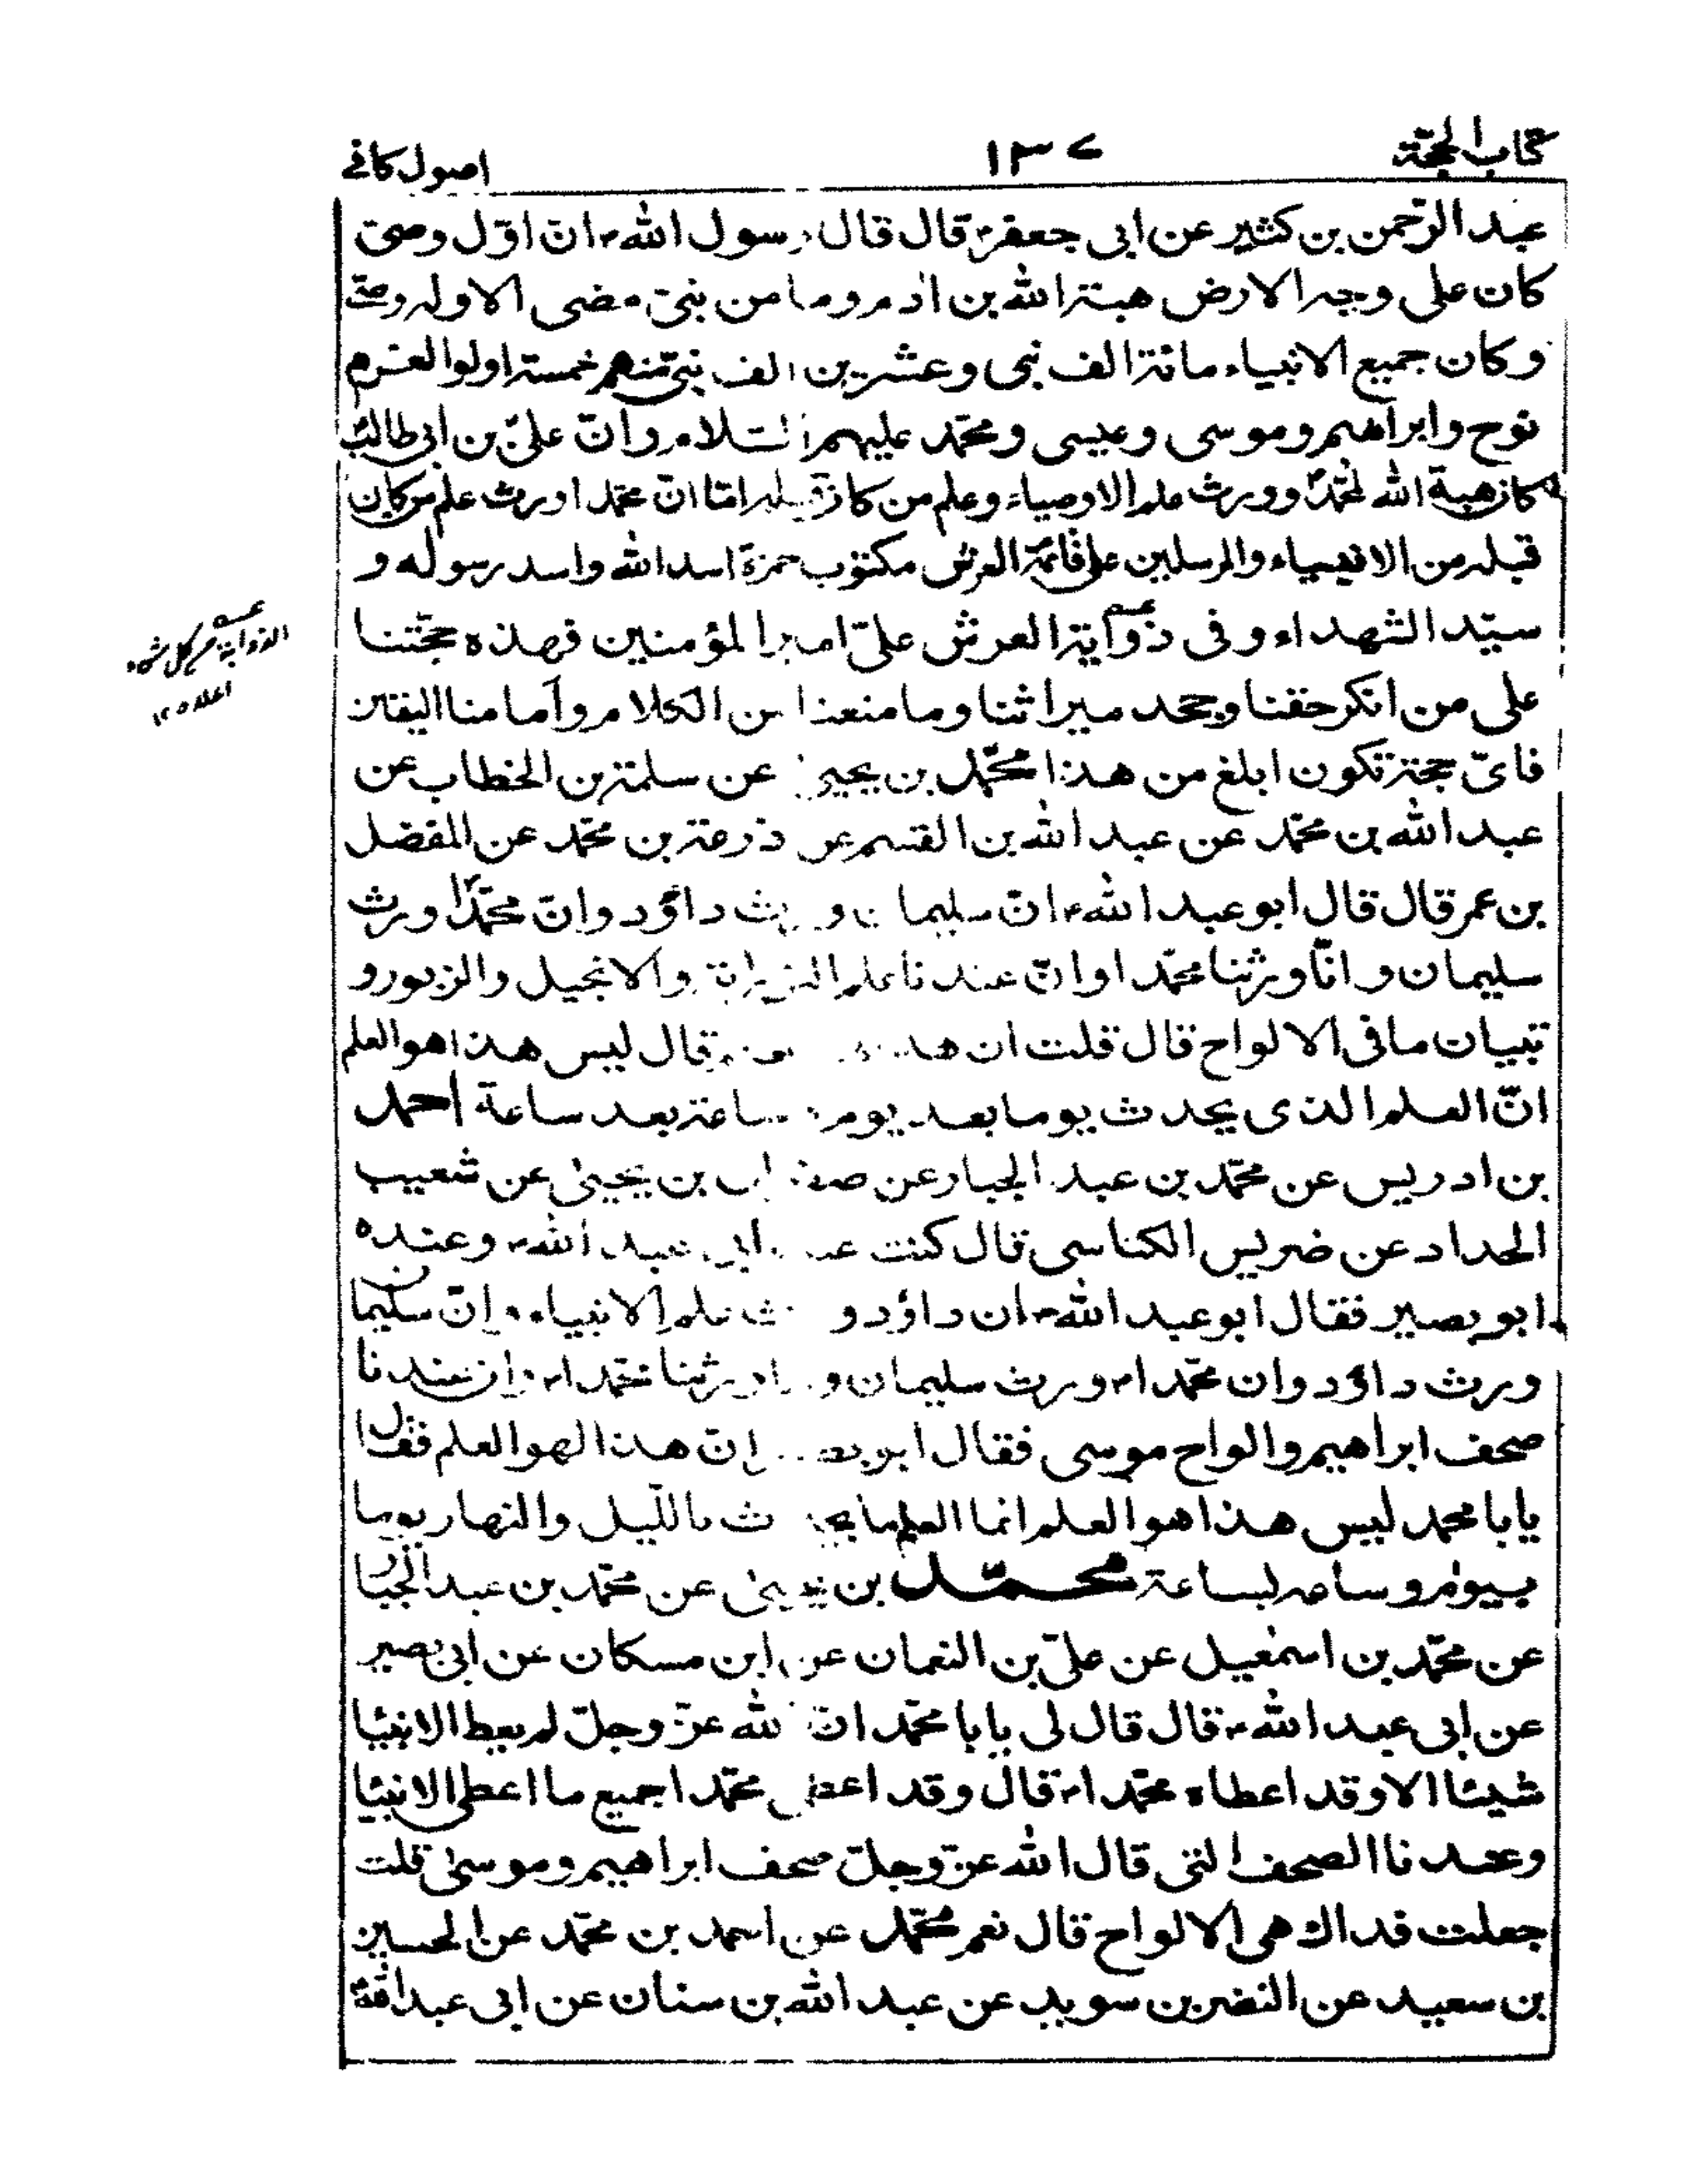 كتاب الحجّة ١٣٧ اصول كافے
عبد الرّحمن بن كثير عن ابى جعفرؑ قال قال رسول اللهؐ انّ اوّل وصىّ
كان على وجه الارض هبة الله بن ادم وما من نبىّ مضى الا وله وصىّ
وكان جميع الانبياء مائة الف نبى وعشرين الف نبىّ منهم خمسة اولوا العزم
نوح وابراهيم وموسى وعيسى ومحمّد عليهم السّلام وانّ علىّ بن ابى طالبؑ
كان هبة الله لمحمّدؐ وورث علم الاوصياء وعلم من كان قبله امّا انّ محمّدا ورث علم من كان
قبله من الانبياء والمرسلين على قائمة العرش مكتوب حمزة اسد الله واسد رسوله و
سيّد الشهداء وفى ذؤابة العرش علىّ امير المؤمنين فهذه حجّتنا
على من انكر حقنا وجحد ميراثنا وما منعنا من الكلام وامامنا اليقين
فاىّ حجة تكون ابلغ من هذا محمّد بن يحيى عن سلمة بن الخطاب عن
عبد الله بن محمّد عن عبد الله بن القسم عن ذرعة بن محمّد عن المفضل
بن عمر قال قال ابو عبد اللهؑ انّ سليمان ورث داؤد وانّ محمّدا ورث
سليمان وانّا ورثنا محمّدا وانّ عندنا علم التوراة والانجيل والزبور و
تبيان ما فى الالواح قال قلت ان هذا قال ليس هذا هو العلم
انّ العلم الذى يحدث يوما بعد يوم ساعة بعد ساعة احمد
بن ادريس عن محمّد بن عبد الجبار عن صفوان بن يحيىٰ عن شعيب
الحداد عن ضريس الكناسى قال كنت عند ابى عبد اللهؑ وعنده
ابو بصير فقال ابو عبد اللهؑ ان داؤد ورث علم الانبياء وانّ سليمان
ورث داؤد وان محمّداؐ ورث سليمان وانا ورثنا محمّداؐ وان عندنا
صحف ابراهيم والواح موسى فقال ابو بصير انّ هذا لهو العلم فقال
يابا محمد ليس هذا هو العلم انما العلم ما يحدث بالليل والنهار يوما
بيوم وساعه لبساعة محمّد بن يحيىٰ عن محمّد بن عبد الجبار
عن محمّد بن اسمٰعيل عن علىّ بن النعمان عن ابن مسكان عن ابى بصير
عن ابى عبد اللهؑ قال قال لى يابا محمّد انّ الله عزّ وجلّ لم يعط الانبيا
شيئا الا وقد اعطاه محمّداؐ قال وقد اعطى محمّدا جميع ما اعطى الانبيا
وعندنا الصحف التى قال الله عزّ وجلّ صحف ابراهيم وموسىٰ قلت
جعلت فداك هى الالواح قال نعم محمّد عن احمد بن محمّد عن الحسين
بن سعيد عن النضر بن سويد عن عبد الله بن سنان عن ابى عبد اللهؑ
اعلاه ١٢